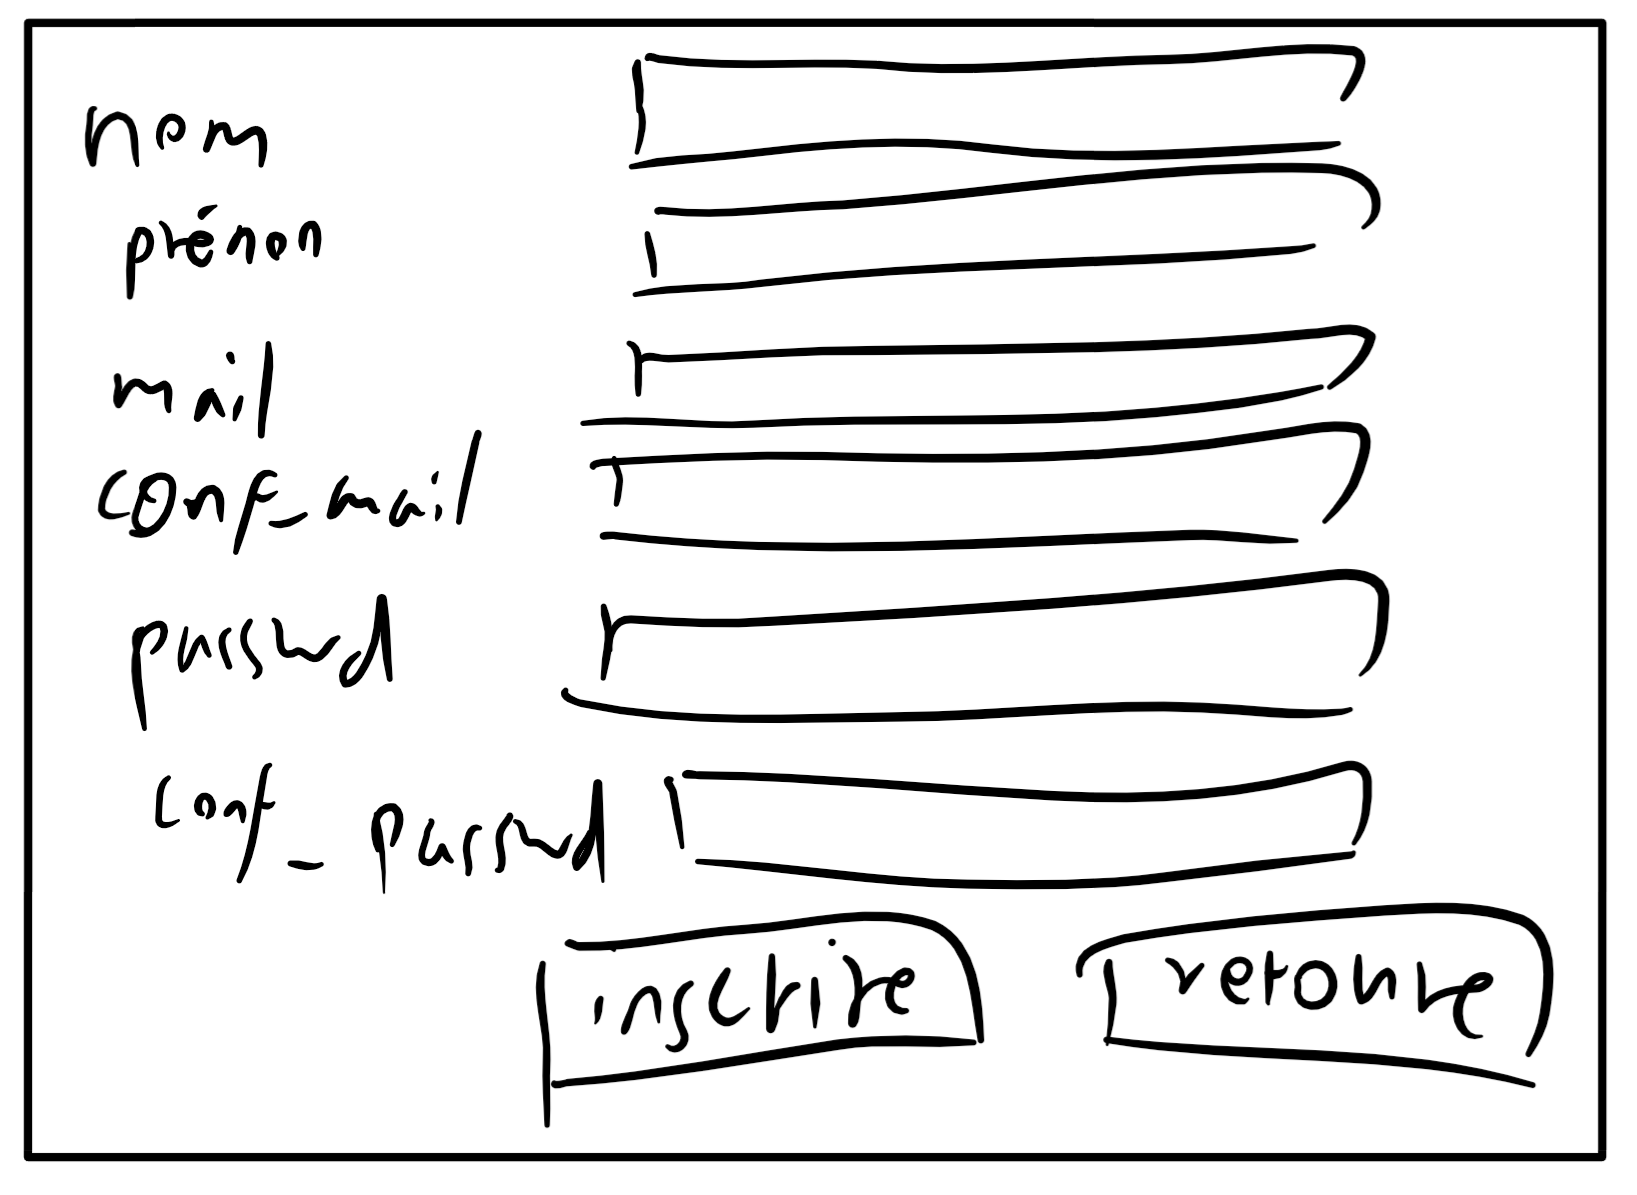 nom
prénon
mail
conf_mail
passwd
conf_passwd
inscrire retoure